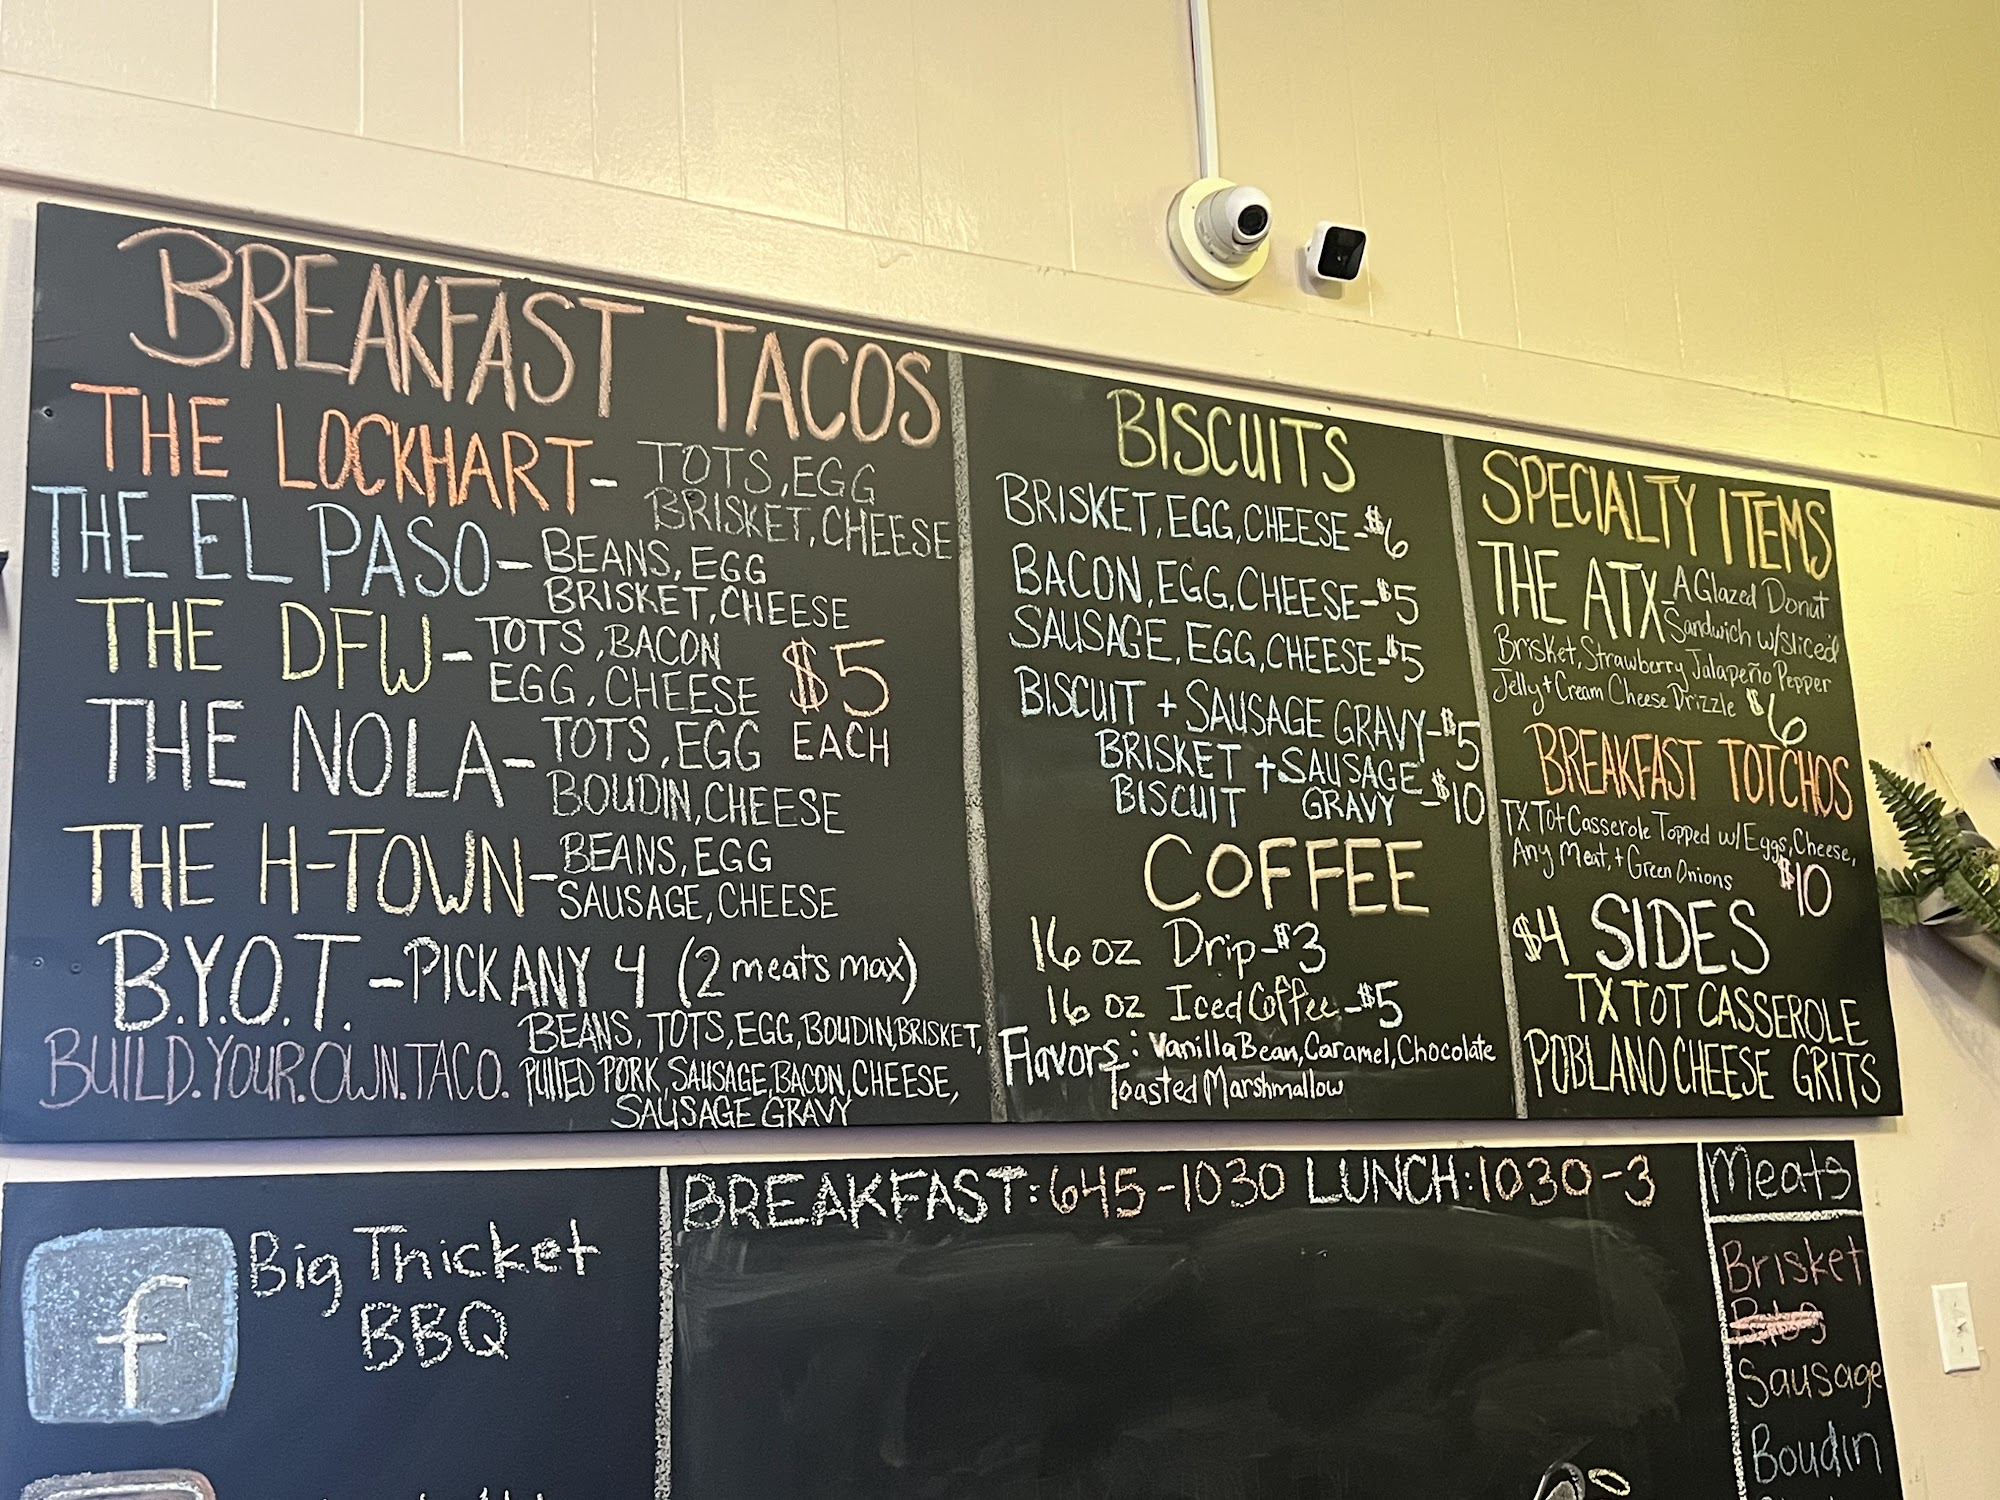 BREAKFAST TACOS
THE LOCKHART - TOTS, EGG
BRISKET, CHEESE
THE EL PASO - BEANS, EGG
BRISKET, CHEESE
THE DFW - TOTS, BACON
EGG, CHEESE
$5
EACH
THE NOLA - TOTS, EGG
BOUDIN, CHEESE
THE H-TOWN - BEANS, EGG
SAUSAGE, CHEESE
B.Y.O.T. - PICK ANY 4 (2 meats max)
BUILD.YOUR.OWN.TACO.
BEANS, TOTS, EGG, BOUDIN, BRISKET,
PULLED PORK, SAUSAGE, BACON, CHEESE,
SAUSAGE GRAVY
BISCUITS
BRISKET, EGG, CHEESE - $6
BACON, EGG, CHEESE - $5
SAUSAGE, EGG, CHEESE - $5
BISCUIT + SAUSAGE GRAVY - $5
BRISKET + SAUSAGE
BISCUIT GRAVY - $10
COFFEE
16 oz Drip - $3
16 oz Iced Coffee - $5
Flavors: Vanilla Bean, Caramel, Chocolate
Toasted Marshmallow
SPECIALTY ITEMS
THE ATX - A Glazed Donut
Sandwich w/Sliced
Brisket, Strawberry Jalapeño Pepper
Jelly + Cream Cheese Drizzle $6
BREAKFAST TOTCHOS
TX Tot Casserole Topped w/ Eggs, Cheese,
Any Meat, + Green Onions $10
$4 SIDES
TX TOT CASSEROLE
POBLANO CHEESE GRITS
f Big Thicket
BBQ
BREAKFAST: 645-1030 LUNCH: 1030-3
Meats
Brisket
Sausage
Boudin